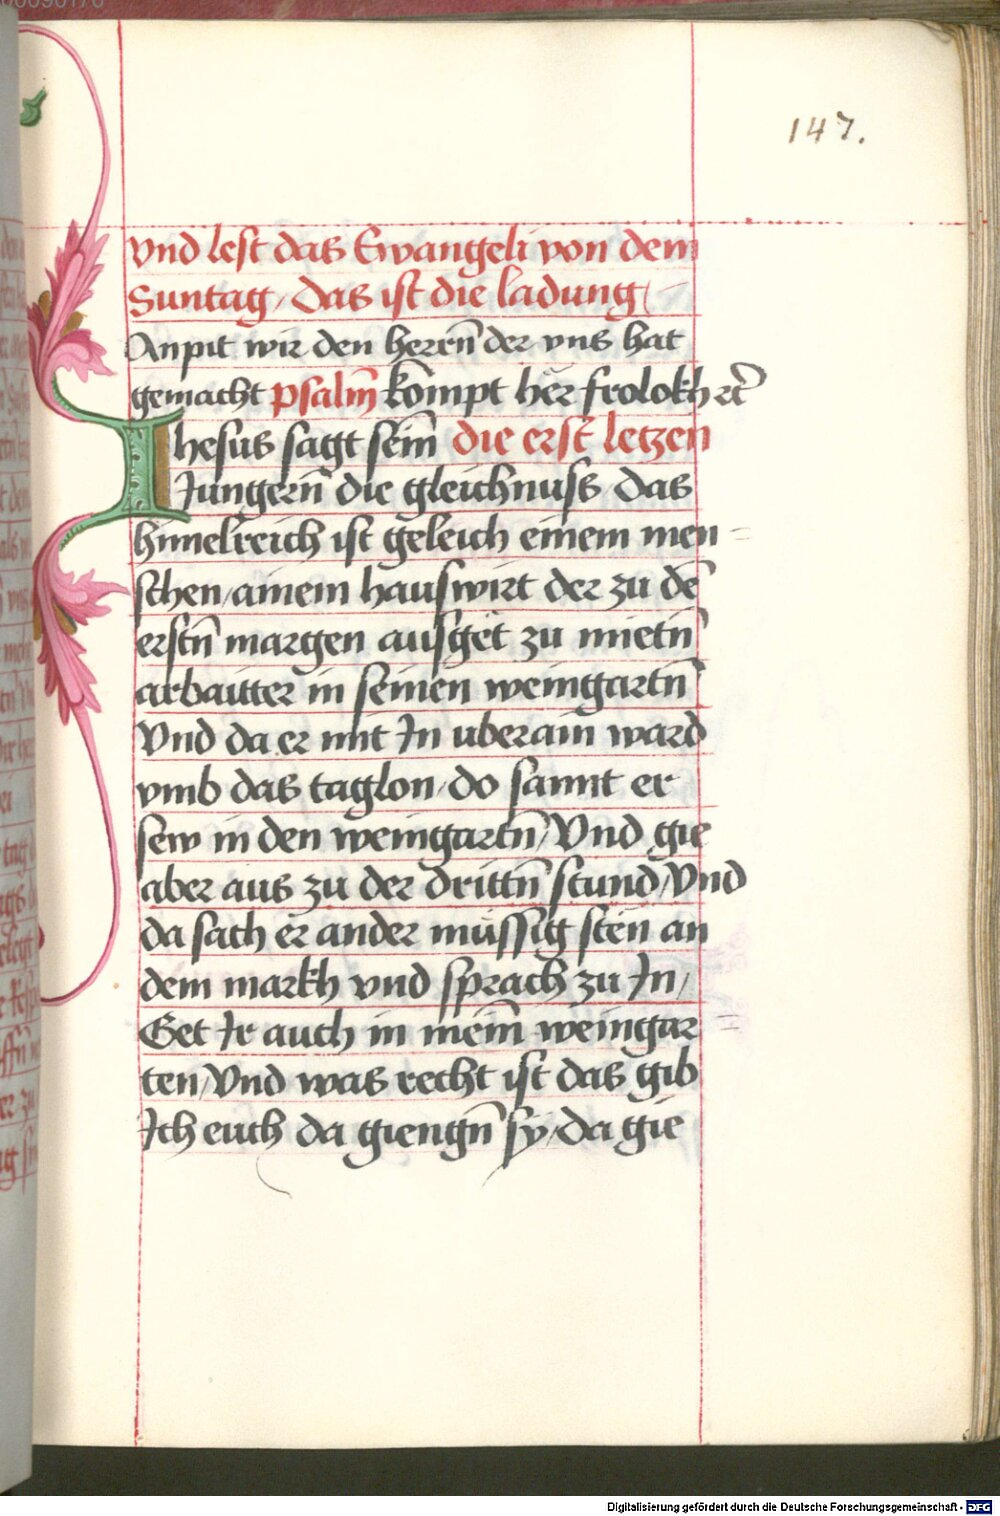 147.
vnd lest das Ewangeli von dem
Suntag / Das ist die ladung /
Anpit wir den herrñ der vns hat
gemacht psalm̄ kompt her frolokh ꝛc̄
Ihesus sagt seim̄ die erst letzen
Jungerñ die gleichnuss das
himelreich ist geleich einem men=
schen / ainem hauswirt der zu dē
erstñ margen ausget zu mietñ
arbaitter in seinen weingartñ
Vnd da er mit In uberain ward
vmb das taglon / do sannt er
sew in den weingartñ / Vnd gie
aber aus zu der drittñ stund / Vnd
da sach er ander müssig sten an
dem markh vnd sprach zu In /
Get Ir auch in meim̄ weingar=
ten / Vnd was recht ist das gib
Ich euch da giengñ sy / da gie
Digitalisierung gefördert durch die Deutsche Forschungsgemeinschaft - DFG